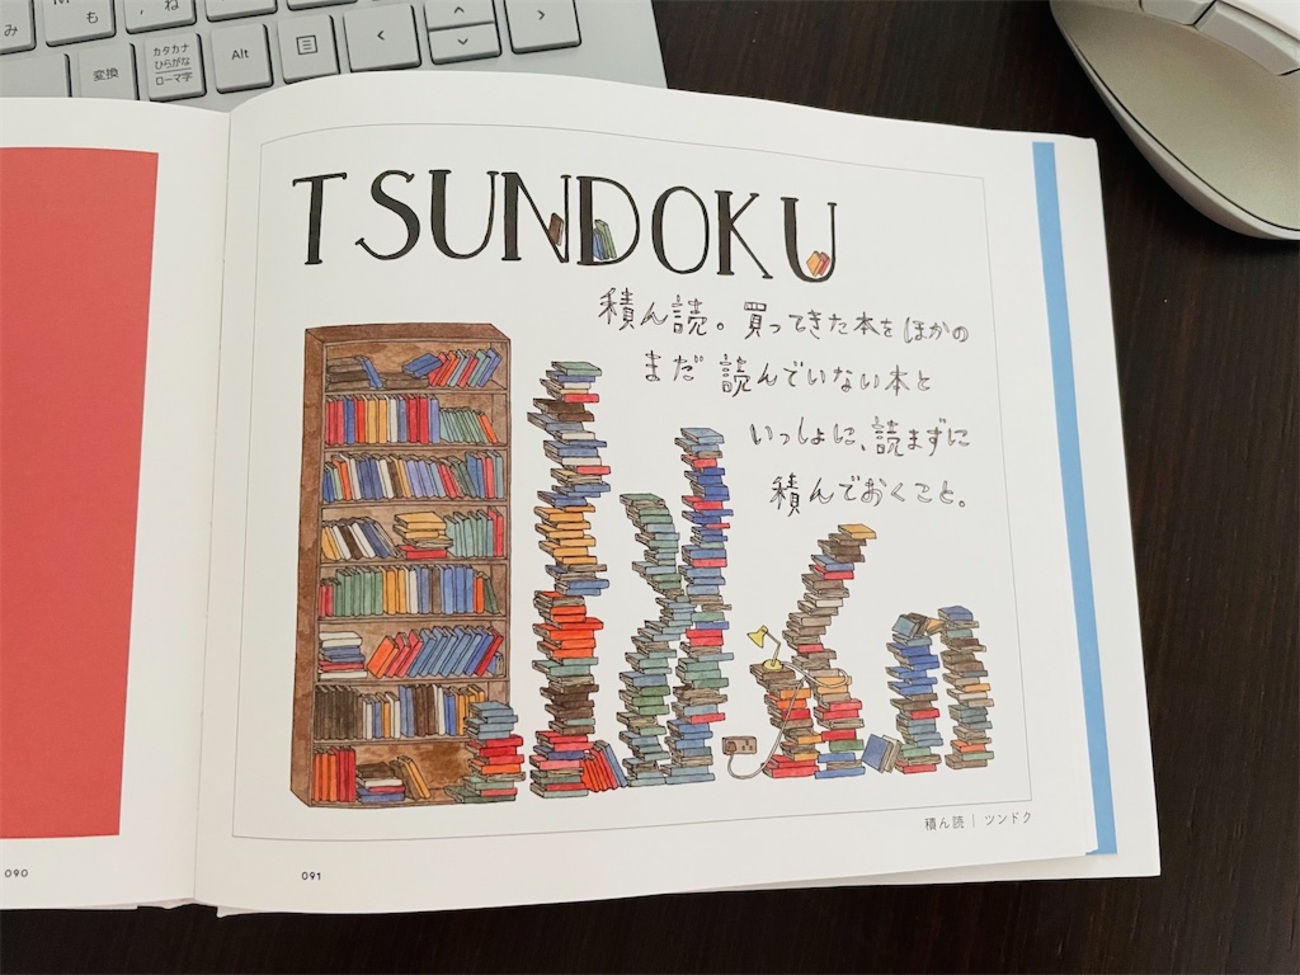 み
も
ね
変換
カタカナ
ひらがな
ローマ字
Alt
TSUNDOKU
積ん読。買ってきた本をほかの
まだ読んでいない本と
いっしょに、読まずに
積んでおくこと。
積ん読｜ツンドク
090
091